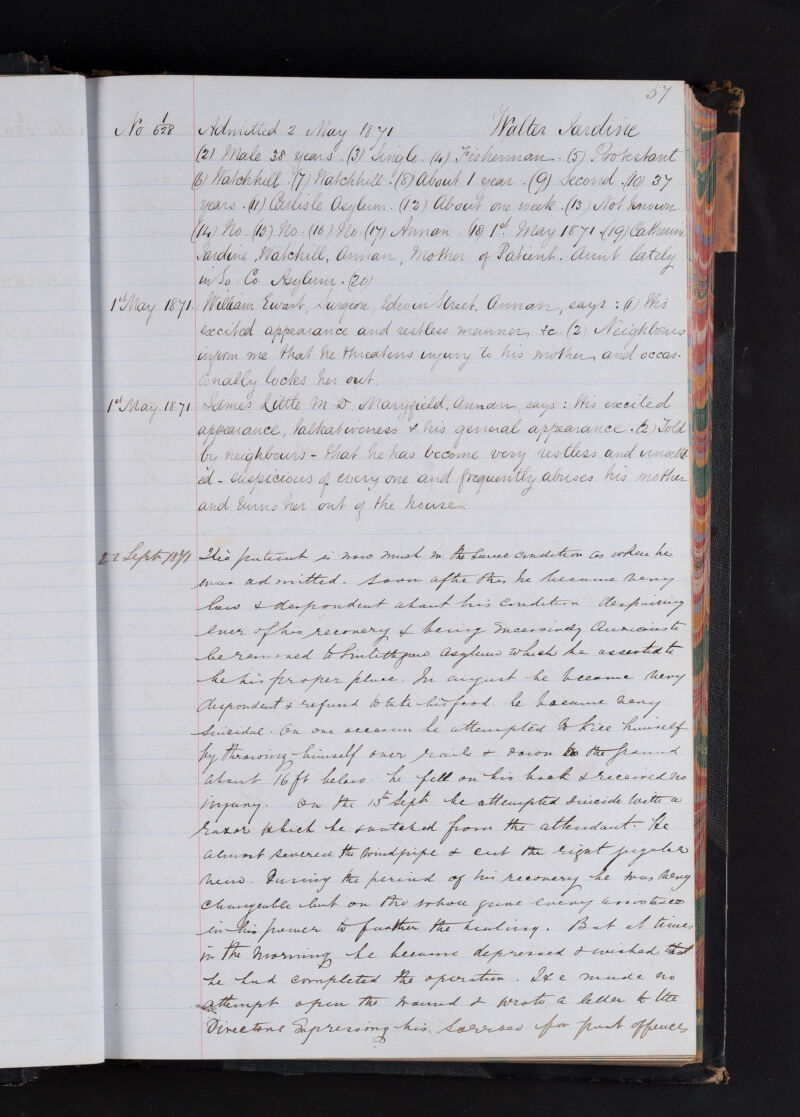 57
No 1/628 Admitted 2 May 1871 Walter Jardine
(2) Male 38 years. (3) Single. (4) Fisherman. (5) Protestant
(6) Watchhill (7) Watchhill. (8) About 1 year. (9) Second. (10) 37
years. (11) Carlisle Asylum. (12) About one week. (13) Not known
(14) No. (15) No. (16) No. (17) Annan. (18) 1st May 1871. (19) Catherine
Jardine, Watchill, Annan, Mother of Patient. Aunt lately
in So. Co. Asylum. (20)
1st May 1871. William Ewart, Surgeon, Edwin Street, Annan, says: (1) His
excited appearance and restless manner, &c. (2) Neighbours
inform me that he threatens injury to his mother, and occas-
ionally locks her out.
1st May 1871 James Little M.D. Maryfield, Annan, says: His excited
appearance, talkativeness & his general appearance. (2) Told
by neighbours - that he has become very restless and unsettl
ed - suspicious of every one and frequently abuses his mother
and turns her out of the house.
Sept 1871 This patient is now much in the same condition as when he
was admitted. Soon after this he became very
low & despondent about his condition despairing
ever of his recovery & being incessantly anxious to
be removed to asylum which he asserted to
be his proper place. In august he became very
despondent & refused to take his food he became very
suicidal. On one occasion he attempted to kill himself
by throwing himself over rails & down to the ground
about 16 ft below. he fell on his back & received no
injury. On the 15th Sept he attempted suicide with a
razor which he snatched from the attendant. He
almost severed the windpipe & cut the right jugular
vein. During the period of his recovery he was very
changeable but on the whole gave every assistance
in his power to further the healing. But at times
in the morning he became depressed & wished that
he had completed the operation. He made no
attempt open the wound & wrote a letter to the
Directors expressing his sorrow for past offences